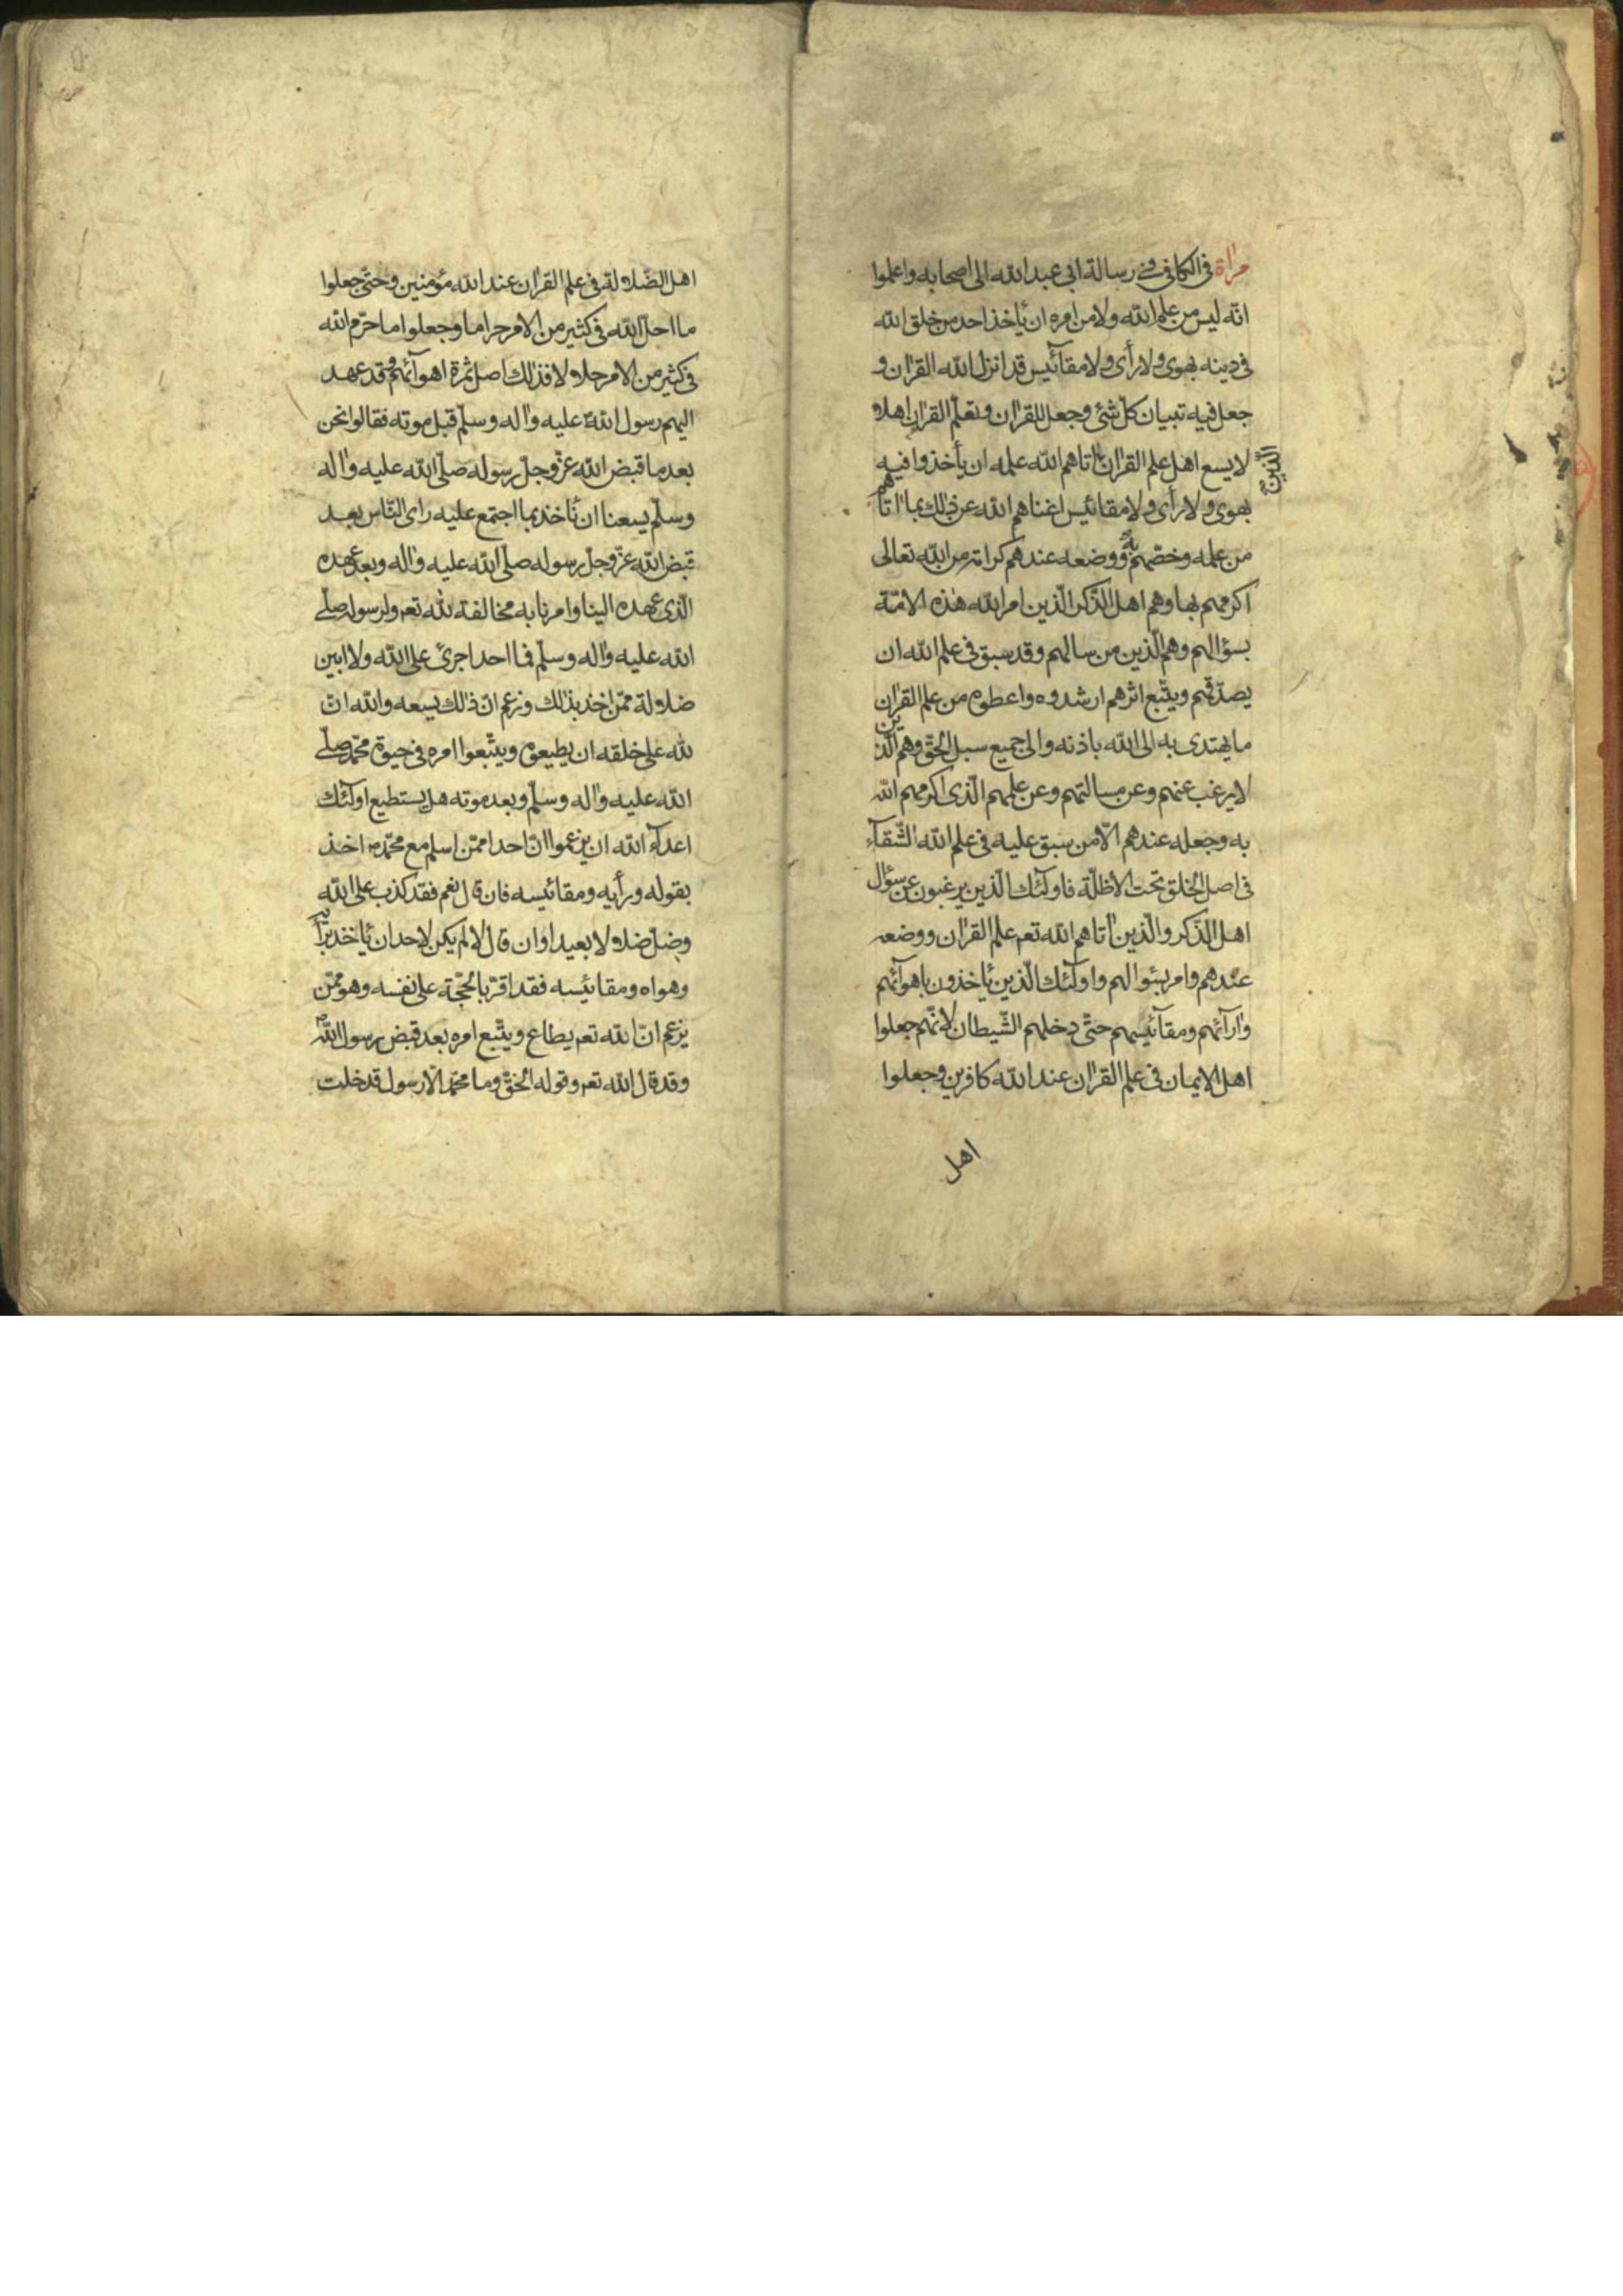 مراة فی الکافی فی رسالة ابی عبدالله الی اصحابه واعلموا
انّه لیس من علم الله ولا من امره ان یٲخذ احد من خلق الله
فی دینه بهوی ولا رأی ولا مقآئیس قد انزل الله القرٰان و
جعل فیه تبیان کلّ شئ وجعل للقرٰان وتعلّم القرٰان اهلا
لا یسع اهل علم القرٰان الّذین اٰتاهم الله علمه ان یأخذوا فیه
بهوی ولا رأی ولا مقائیس اغناهم الله عن ذٰلك بما اٰتاهم
من علمه وخصّهم به ووضعه عندهم کرامة من الله تعالی
اکرمهم بها وهم اهل الذّکر الّذین امر الله هٰذه الامّة
بسؤالهم وهم الّذین من سالهم وقد سبق فی علم الله ان
یصدّقهم ویتّبع اثرهم ارشدوه واعطوه من علم القرٰان
ما یهتدی به الی الله باذنه والی جمیع سبل الحقّ وهم الّذین
لا یرغب عنهم وعن مسالتهم وعن علمهم الّذی اکرمهم الله
به وجعله عندهم الّا من سبق علیه فی علم الله الشّقآء
فی اصل الخلق تحت الاظلّة فاولٰئك الّذین یرغبون عن سؤال
اهل الذّکر والّذین اٰتاهم الله تعٰ علم القرٰان ووضعه
عندهم وامر بسئوالهم واولٰئك الّذین یٲخذون باهوآئهم
واٰرآئهم ومقآئیسهم حتّی دخلهم الشّیطان لانّهم جعلوا
اهل الایمان فی علم القرٰان عند الله کافرین وجعلوا
اهل
اهل الضّلالة فی علم القرٰان عند الله مؤمنین وحتّی جعلوا
ما احلّ الله فی کثیر من الامر حراما وجعلوا ما حرّم الله
فی کثیر من الامر حلالا فذٰلك اصل ثمرة اهوآئهم وقد عهد
الیهم رسول الله ص علیه واٰله وسلّم قبل موته فقالوا نحن
بعد ما قبض الله عزّوجلّ رسوله صلّی الله علیه واٰله
وسلّم یسعنا ان نٲخذ بما اجتمع علیه رای النّاس بعد
قبض الله عزّوجلّ رسوله صلّی الله علیه واٰله وبعد عهده
الّذی عهده الینا وامرنا به مخالفة لله تعٰ ولرسوله صلّی
الله علیه واٰله وسلّم فما احد اجرئ علی الله ولا ابین
ضلالة ممّن اخذ بذٰلك وزعم انّ ذٰلك یسعه والله انّ
لله علی خلقه ان یطیعوه ویتّبعوا امره فی حیوة محمّد صلّی
الله علیه واٰله وسلّم وبعد موته هل یستطیع اولٰئك
اعدآء الله ان یزعموا انّ احدا ممّن اسلم مع محمّد ص اخذ
بقوله ورأیه ومقائیسه فان قال نعم فقد کذب علی الله
وضلّ ضلالا بعیدا وان قال لا لم یکن لاحد ان یٲخذ برأیه
وهواه ومقائیسه فقد اقرّ بالحجّة علی نفسه وهو ممّن
یزعم انّ الله تعٰ یطاع ویتّبع امره بعد قبض رسول الله ص
وقد قال الله تعٰ وقوله الحقّ وما محمّد الّا رسول قد خلت